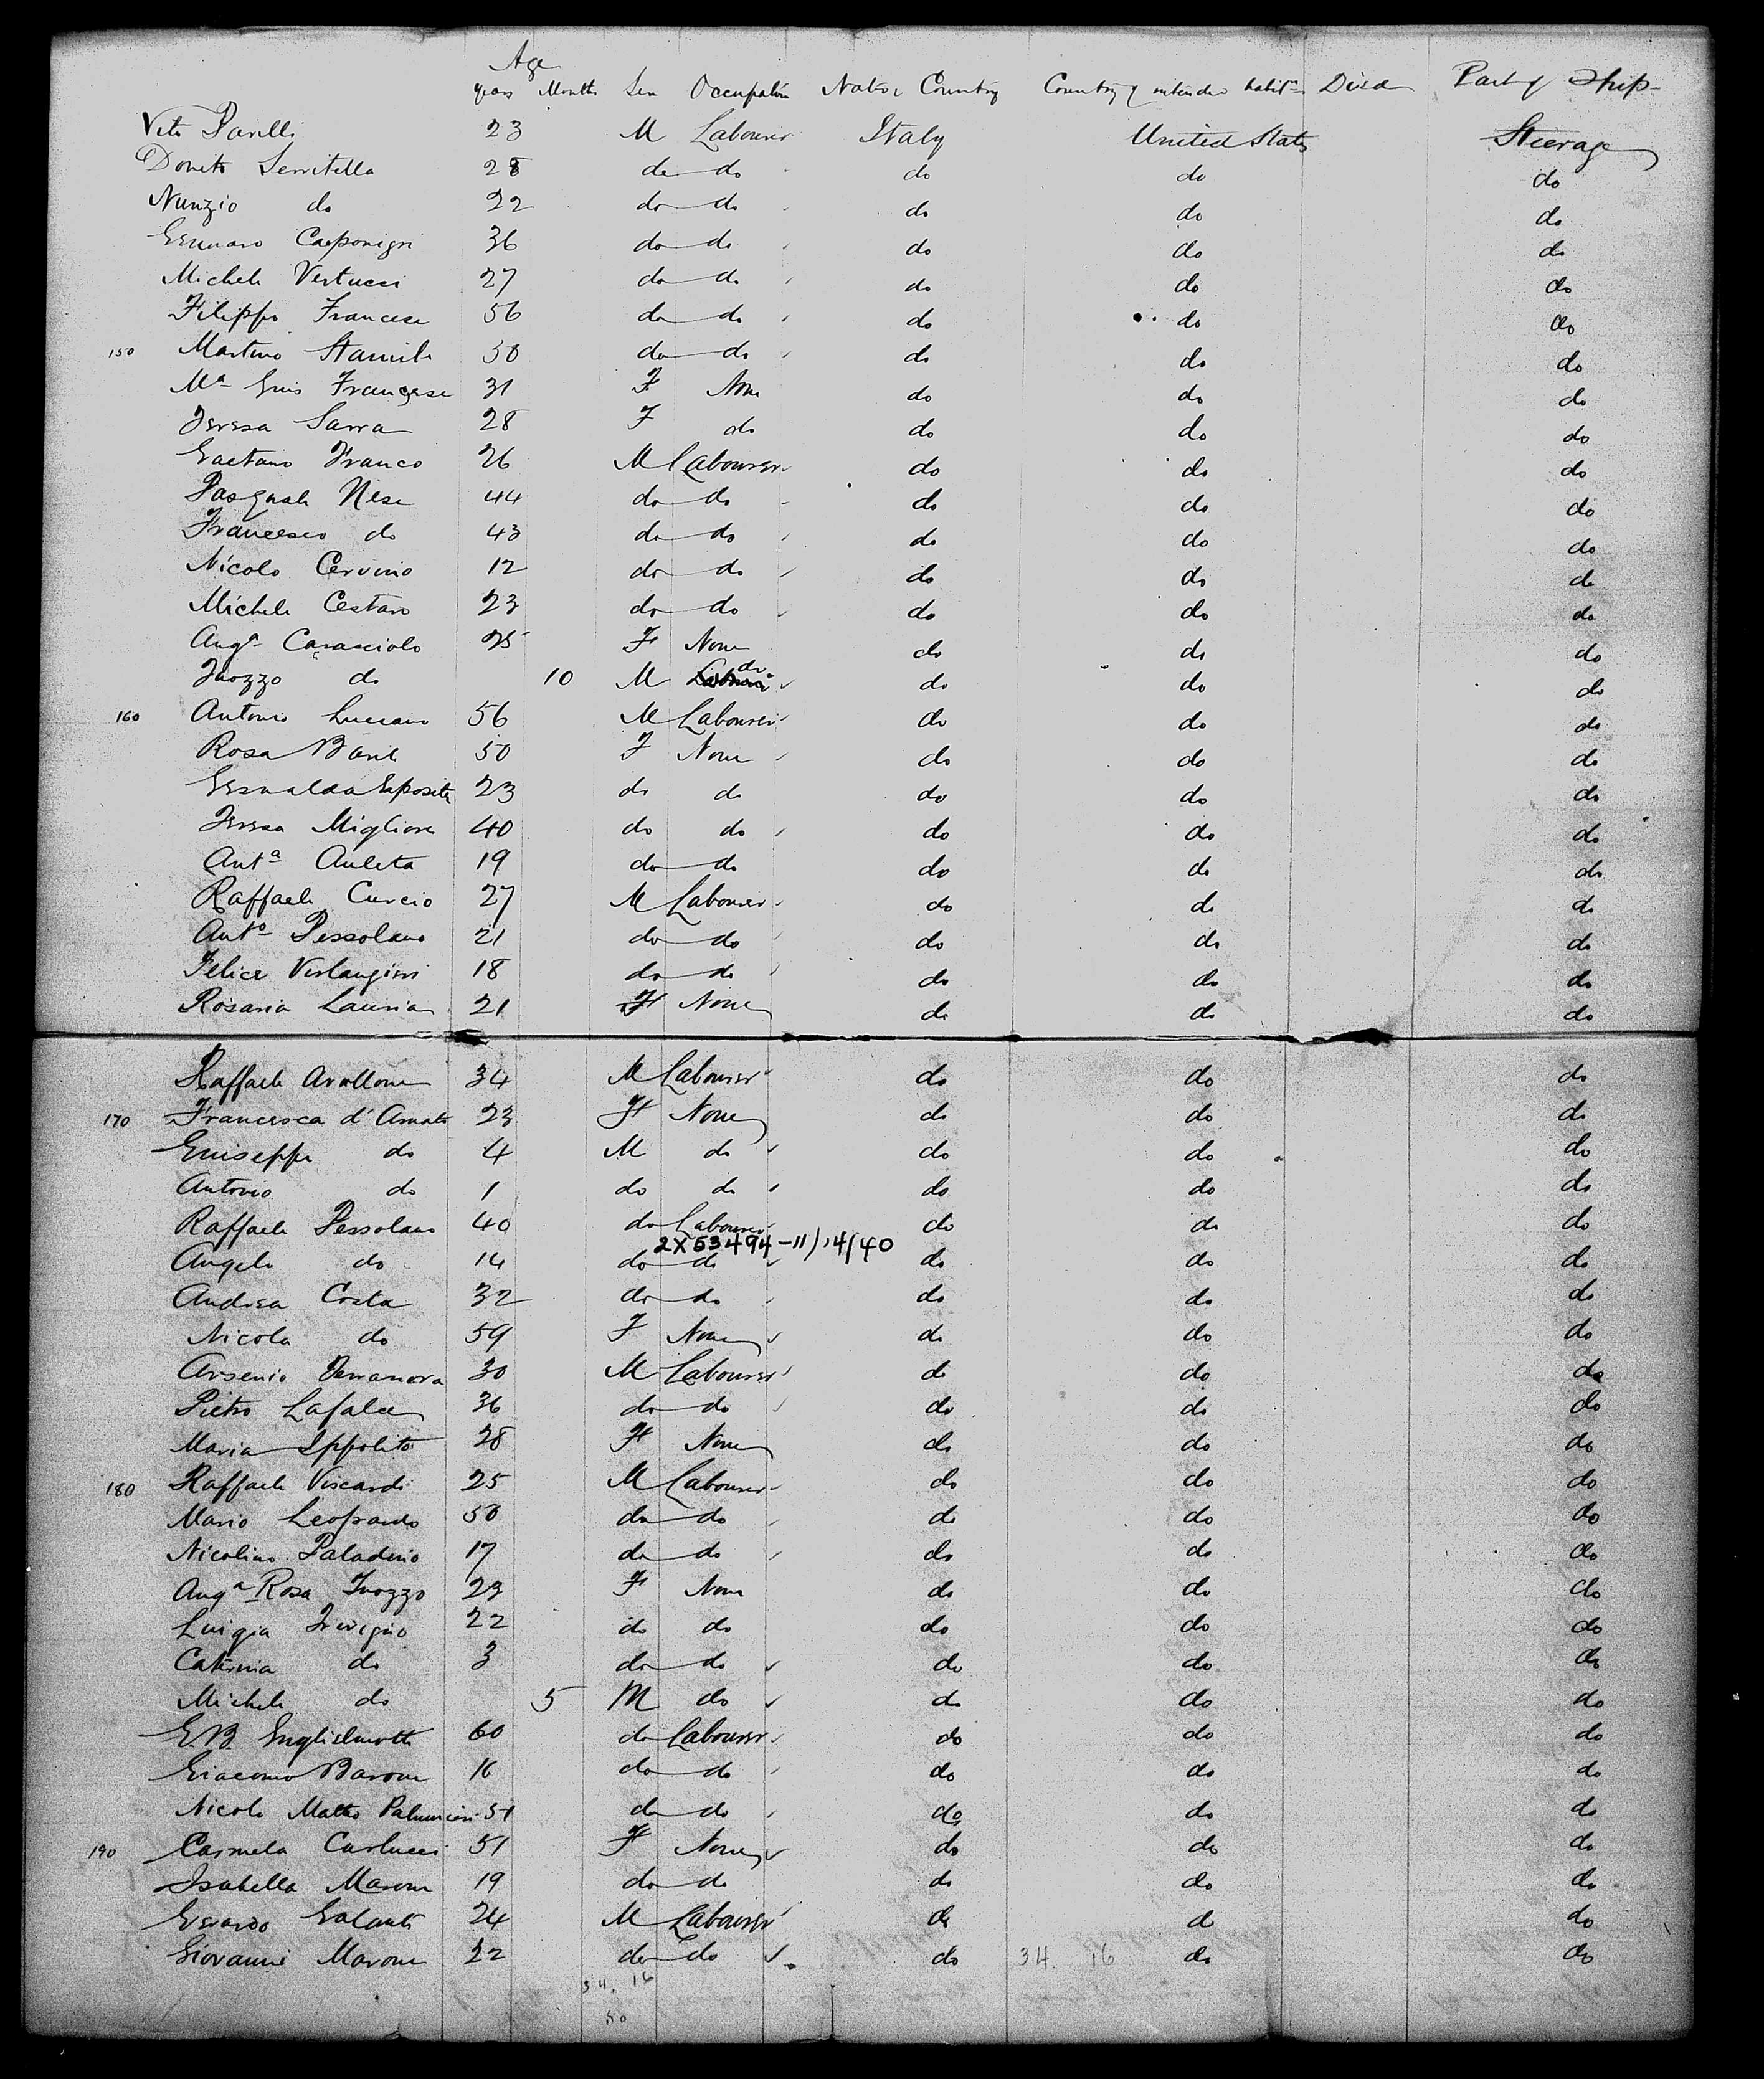 Age
years Months Sex Occupation Native Country Country of intended habitn Died Part of Ship
Vito Parilli 23 M Labourer Italy United States Steerage
Donato Serritella 28 do do do do do
Nunzio do 22 do do do do do
Gennaro Caponigri 36 do do do do do
Michele Vertucci 27 do do do do do
Filippo Francese 56 do do do do do
150 Martino Stamile 50 do do do do do
Ma Guis Francese 31 F None do do do
Teresa Sarra 28 F do do do do
Gaetano Franco 26 M Labourer do do do
Pasquale Nese 44 do do do do do
Francesco do 43 do do do do do
Nicolo Cervino 12 do do do do do
Michele Cestaro 23 do do do do do
Anga Caracciolo 25 F None do do do
Iuozzo do 10 M do do do do
160 Antonio Luciano 56 M Labourer do do do
Rosa Barile 50 F None do do do
Esposito 23 do do do do do
Teresa Migliore 40 do do do do do
Anta Auleta 19 do do do do do
Raffaele Curcio 27 M Labourer do do do
Anto Pessolano 21 do do do do do
Felice Verlangieri 18 do do do do do
Rosaria Lauria 21 F None do do do
Raffaele Avallone 34 M Labourer do do do
170 Francesca d'Amato 23 F None do do do
Guiseppe do 4 M do do do do
Antonio do 1 do do do do do
Raffaele Pessolano 40 do Labourer do do do
2X53494-11/14/40
Angelo do 14 do do do do do
Andrea Costa 32 do do do do do
Nicola do 59 F None do do do
Arsenio Terranova 30 M Labourer do do do
Pietro Lafalce 36 do do do do do
Maria Ippolito 28 F None do do do
180 Raffaele Viscardi 25 M Labourer do do do
Mario Leopardo 50 do do do do do
Nicolino Paladino 17 do do do do do
Anga Rosa Iuozzo 23 F None do do do
Luigia Trivigno 22 do do do do do
Caterina do 3 do do do do do
Michele do 5 M do do do do
G.B. Guglielmotti 60 do Labourer do do do
Giacomo Barone 16 do do do do do
Nicola Matteo Palumcieri 51 do do do do do
190 Carmela Carlucci 51 F None do do do
Isabella Marone 19 do do do do do
Gerardo Galante 24 M Labourer do do do
Giovanni Marone 22 do do do 34. 16 do do
34. 16
50